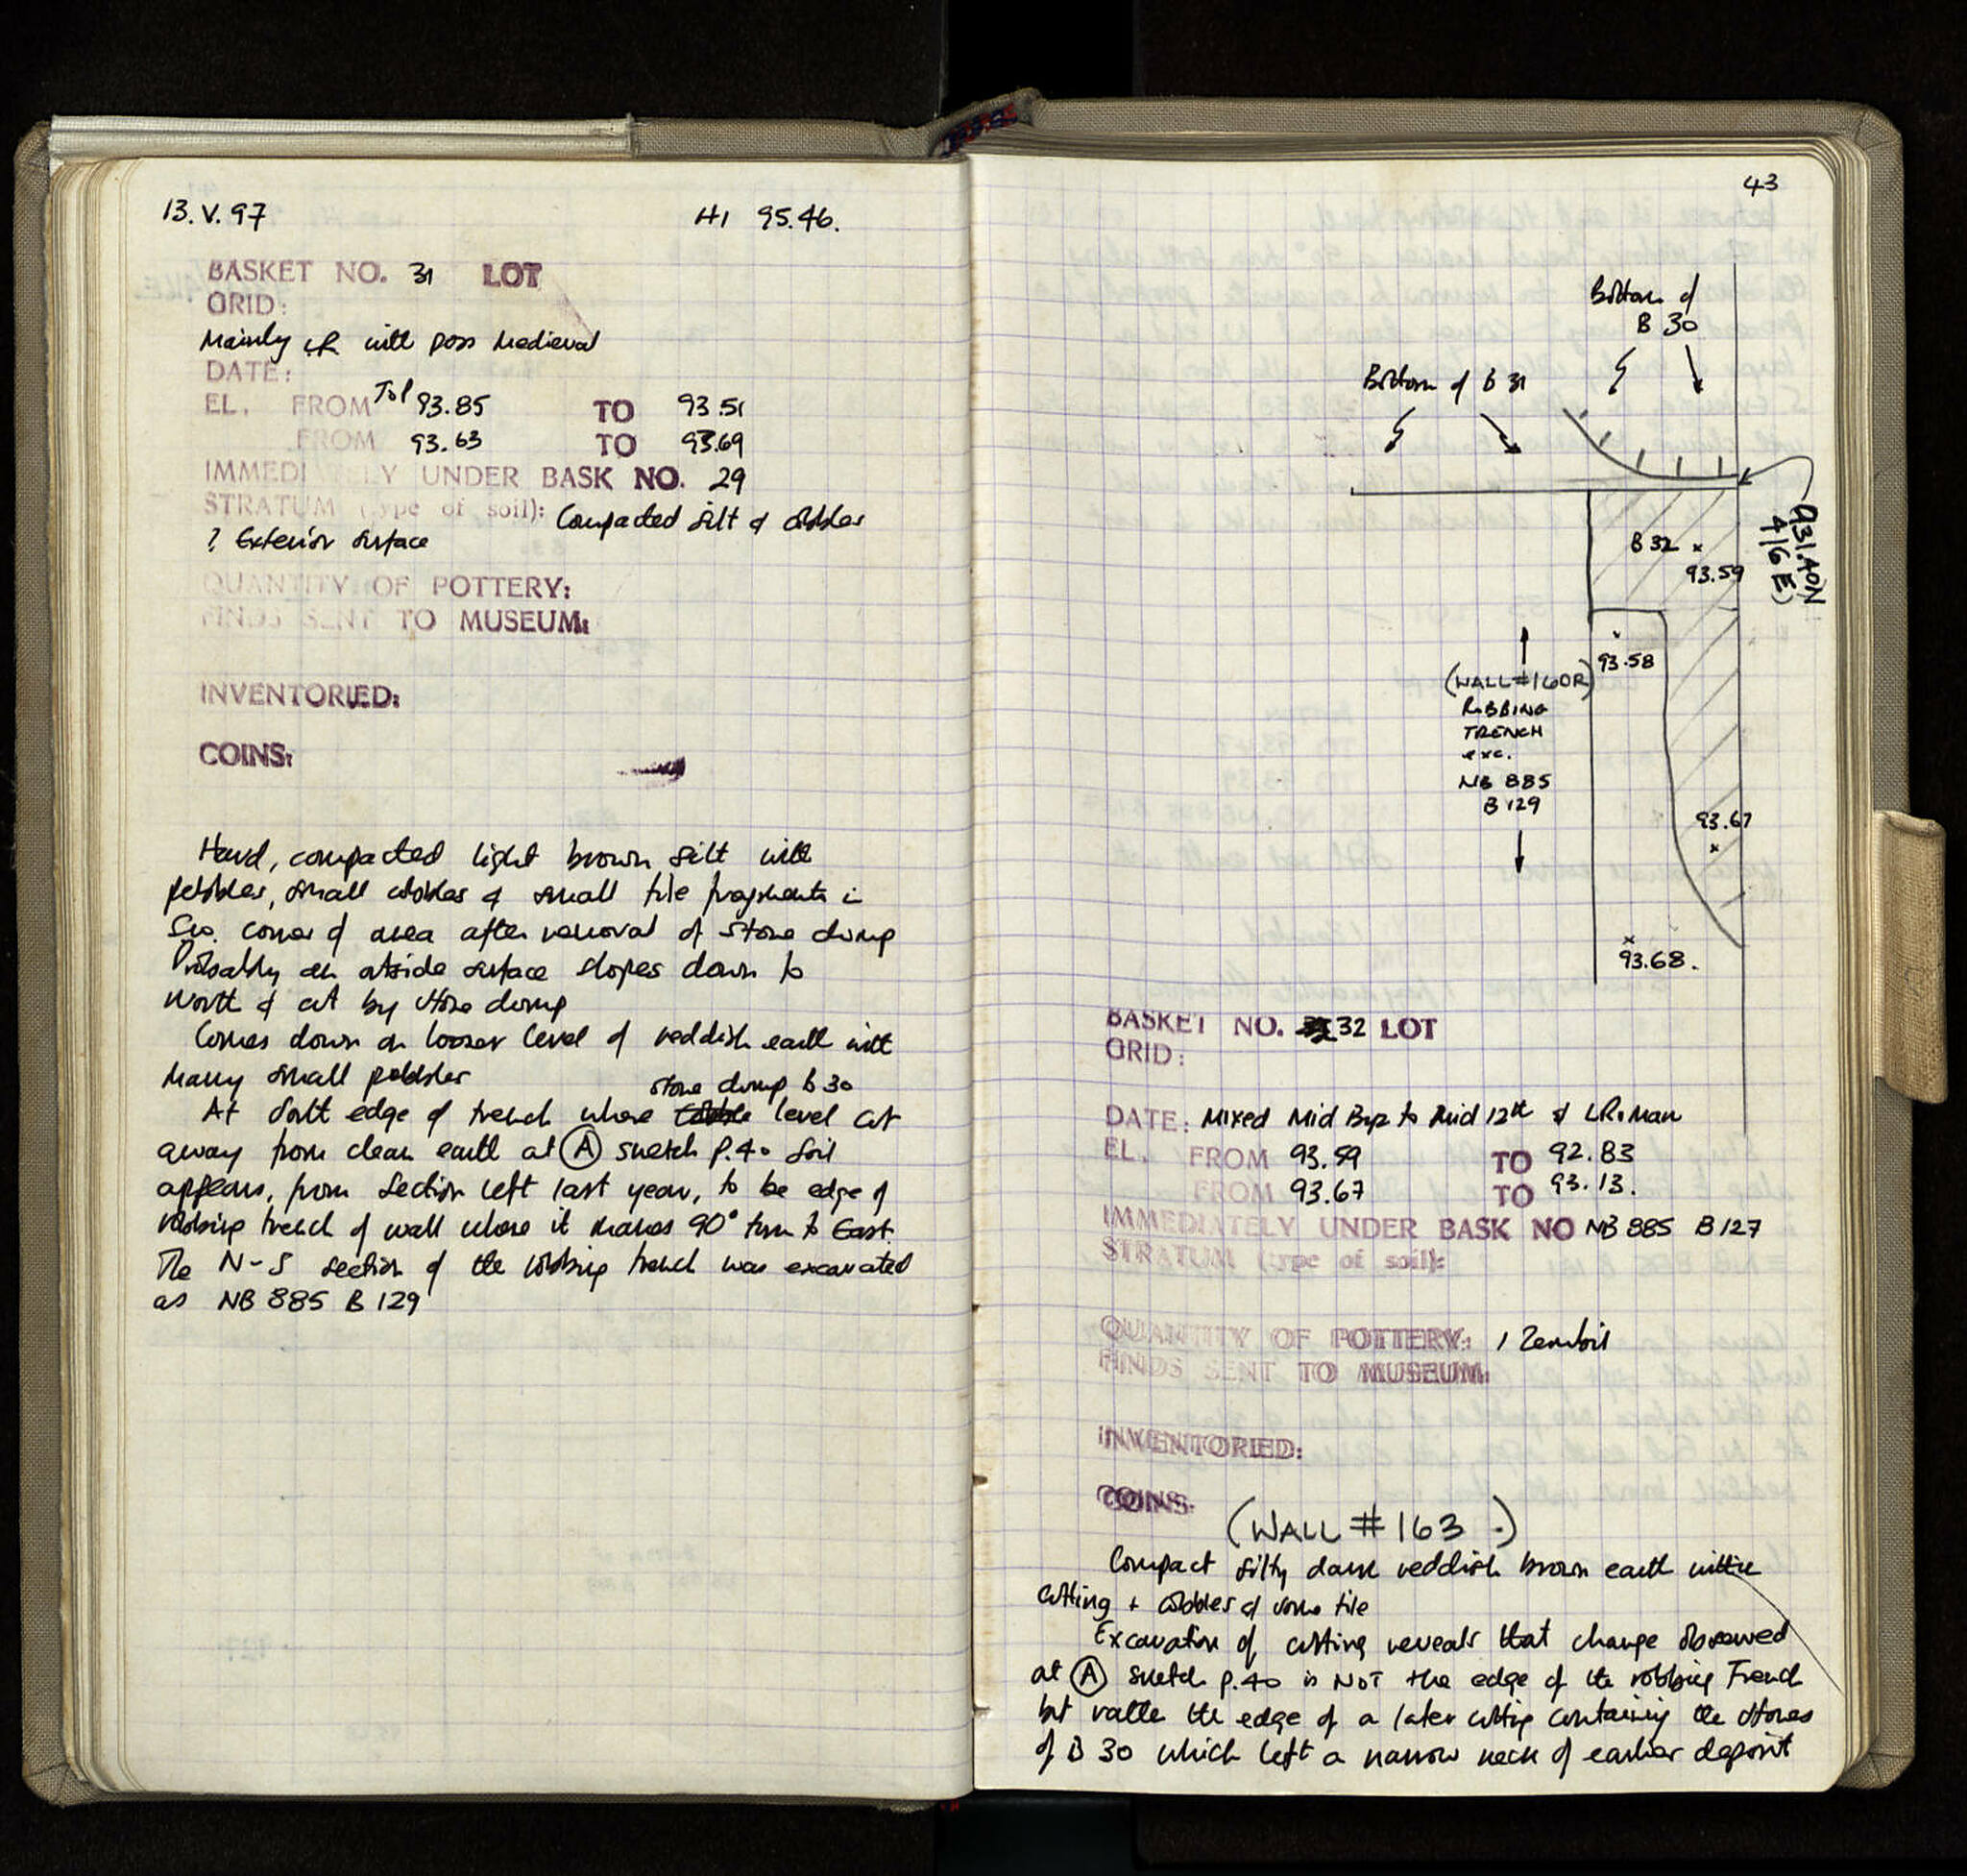 13.V.97 HI 95.46.
BASKET NO. 31 LOT
GRID:
Mainly LR with poss Medieval
DATE:
EL. FROM Tol 93.85 TO 93.51
FROM 93.63 TO 93.69
IMMEDI LY UNDER BASK NO. 29
STRATUM (type of soil): Compacted silt & cobbles
? Exterior surface
QUANTITY OF POTTERY:
FINDS SENT TO MUSEUM:
INVENTORIED:
COINS:
Hard, compacted light brown silt with
pebbles, small cobbles & small tile fragments in
SW. corner of area after removal of stone dump
Probably an outside surface slopes down to
North & cut by stone dump
Comes down on looser level of reddish earth with
many small pebbles
stone dump B30
At South edge of trench where cobble level cut
away from clean earth at (A) sketch p.40 soil
appears, from section left last year, to be edge of
robbing trench of wall where it makes 90° turn to East.
The N-S section of the robbing trench was excavated
as NB 885 B 129
43
Bottom of
B 30
Bottom of B 31
(931.40N
416E)
B 32 x
93.59
93.58
(WALL #160R)
ROBBING
TRENCH
exc.
NB 885
B 129
93.67
x
x
93.68.
BASKET NO. 32 LOT
GRID:
DATE: Mixed Mid Byz to Mid 12th & LRoman
EL. FROM 93.59 TO 92.83
FROM 93.67 TO 93.13.
IMMEDIATELY UNDER BASK NO NB 885 B127
STRATUM (type of soil):
QUANTITY OF POTTERY: 1 Zembil
FINDS SENT TO MUSEUM:
INVENTORIED:
COINS:
(WALL #163 .)
Compact silty dark reddish brown earth within
cutting + cobbles & some tile
Excavation of cutting reveals that change observed
at (A) sketch p.40 is NOT the edge of the robbing Trench
but rather the edge of a later cutting containing the stones
of B 30 which left a narrow neck of earlier deposit